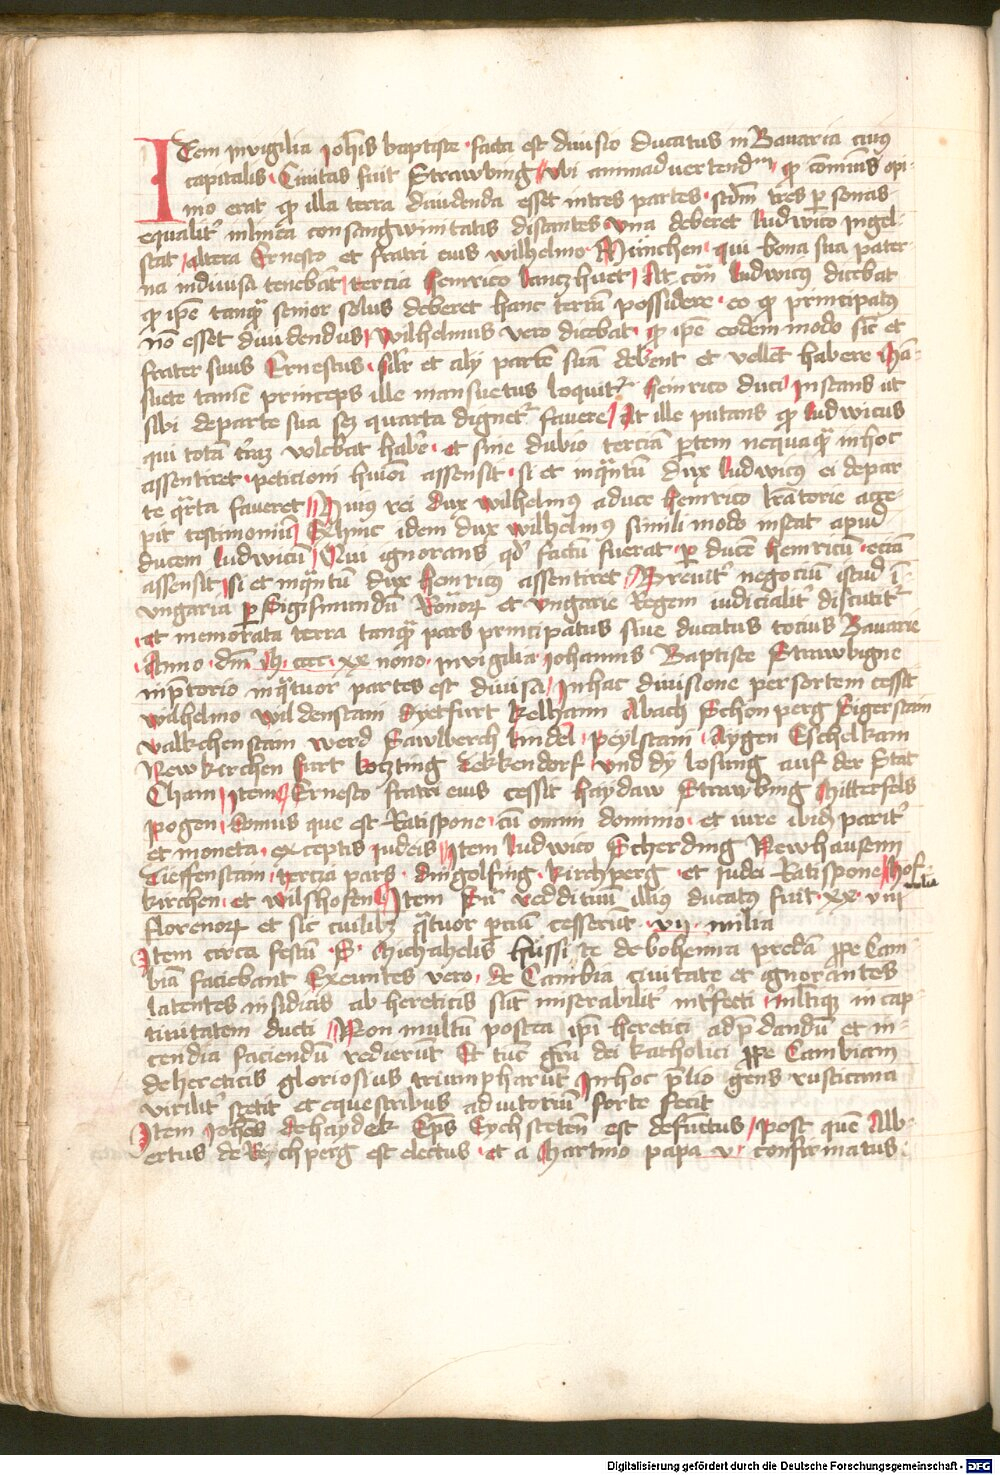 Item in vigilia Joh̄is baptiste · facta est diuisio Ducatus in Bauaria cuius
capitalis · Ciuitas fuit Strawbing // vbi animaduertend̄ · qͥ om̄nius opi-
nio erat qͥ illa terra diuidenda esset in tres partes · scd̄m tres personas
equalit' in linea consangwinitatis distantes · vna deberet ludwico Ingel-
stat / altera Ernesto et fratri eius wilhelmo München · qui bona sua pater-
na indiuisa tenebāt / tercia heinrico lanczhuet / At cōn ludwicus dicebat
qͥ ip̄e tanqͣ senior solus deberet hanc terrā possidere · eo qͥ principatus
nō esset diuidendus / Wilhelmus vero dicebat · qͥ ip̄e eodem modo sic et
frater suus Ernestus · silr et alij partē suā debent et vellēt habere Mā-
suete tamē princeps ille mansuetus loquit' heinrico duci / Instans ut
sibi de parte sua scz quarta dignet' fauere / At ille putans qͥ ludwicus
qui totā t'raz volebat hab'e · et sine dubio terciā ꝑtem nequaqͣ in hoc
assentiret · peticioni hmōi assensit · si et inqͣntū dux ludwicus ei de par
te qͣrta faueret // Huius rei dux wilhelmus a duce heinrico lrātorie acce-
pit testimoniū / Exhinc idem dux wilhelmus simili modo instat apud
ducem ludwicū / Qui ignorans qd' factū fuerat · ꝑ ducē heinricū · eciā
assensit / si et inqͣntū dux heinricus assentiret / Breuit' negociū istud ī
vngaria ꝑ Sigismundū Romanoꝝ et vngarie Regem iudicialit' discutit'
· et memorata terra tanqͣ pars principatus siue ducatus tocius Bauarie
· Anno · dm̄ · M · cccc · xx nono · in vigilia Johannis Baptiste Strawbigne
in p̄torio in qͣtuor partes est diuisa / In hac diuisione per sortem cessit
wilhelmo wildenstain Dyetfurt kelhaim Abach Schonperg Sigerstain
walkchenstain werd Sawlberch kindel · peylstain · Aygen Eschelkam
Newkirchen furt koczting Dekkendorf · vnd dy losung auf der Stat
Cham / Item / Ernesto fratri eius cessit haydaw Strawbing Mitterfels
pogen / domus que est Ratispone · cū omni dominio · et iure ibid' parit'
et moneta · exceptis iudeis / Item ludwico Scherding Newhausenn
Dieffenstain · tercia pars · dingolfing · kirchperg · et Judei Ratispone / hof-
kirchen · et wilshofen / Item Sū reddituū illius ducatus fuit · xx · viij milia
florenoꝝ et sic cuilibz qͣtuor pciū cesserūt · vij · milia
Item circa festū · S · Michahelis Hussite de bohemia predā ꝓpe Cam-
biā faciebant Exeuntes vero · de Cambia ciuitate et ignorantes
latentes insidias ab hereticis sūt miserabilit' int'fecti · multiqꝫ in cap-
tiuitatem ducti / Non multū postea ip̄i heretici ad p̄dandū et in-
cendia faciendū redierūt Et tūc grā dei katholici ꝓpe Cambiam
de hereticis gloriosius triumpharūt In hoc p̄lio gens rusticana
virilit' stetit et equestribus adiutoriū forte fecit
Item Joh̄es de haydek Ep̄s Eychstetēn est defūctus / post quē Alb-
ertus de Reychperg est electus · et a Martino papa · v · confirmatus ·
Digitalisierung gefördert durch die Deutsche Forschungsgemeinschaft - DFG